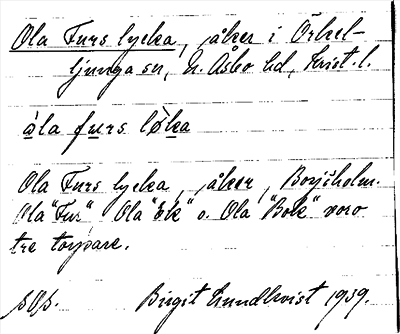 Ola Furs lycka, åker i Örkel-
ljunga sn, N. Åsbo hd, Krist. l.
òla furs løka
Ola Furs lycka, åker, Borjsholm.
Ola "Fur" Ola "Ek" o. Ola "Bok" voro
tre torpare.
Birgit Lundkvist 1939.